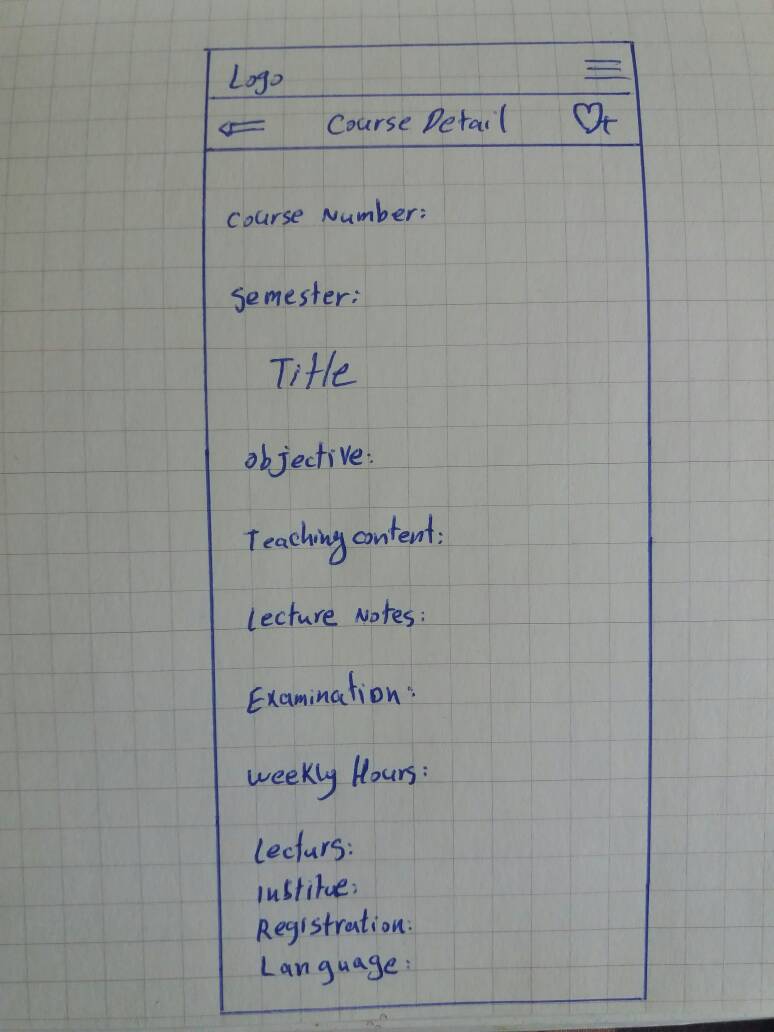 Logo
Course Detail
Course Number:
Semester:
Title
Objective:
Teaching content:
Lecture Notes:
Examination:
Weekly Hours:
Lecturs:
Institue:
Registration:
Language: